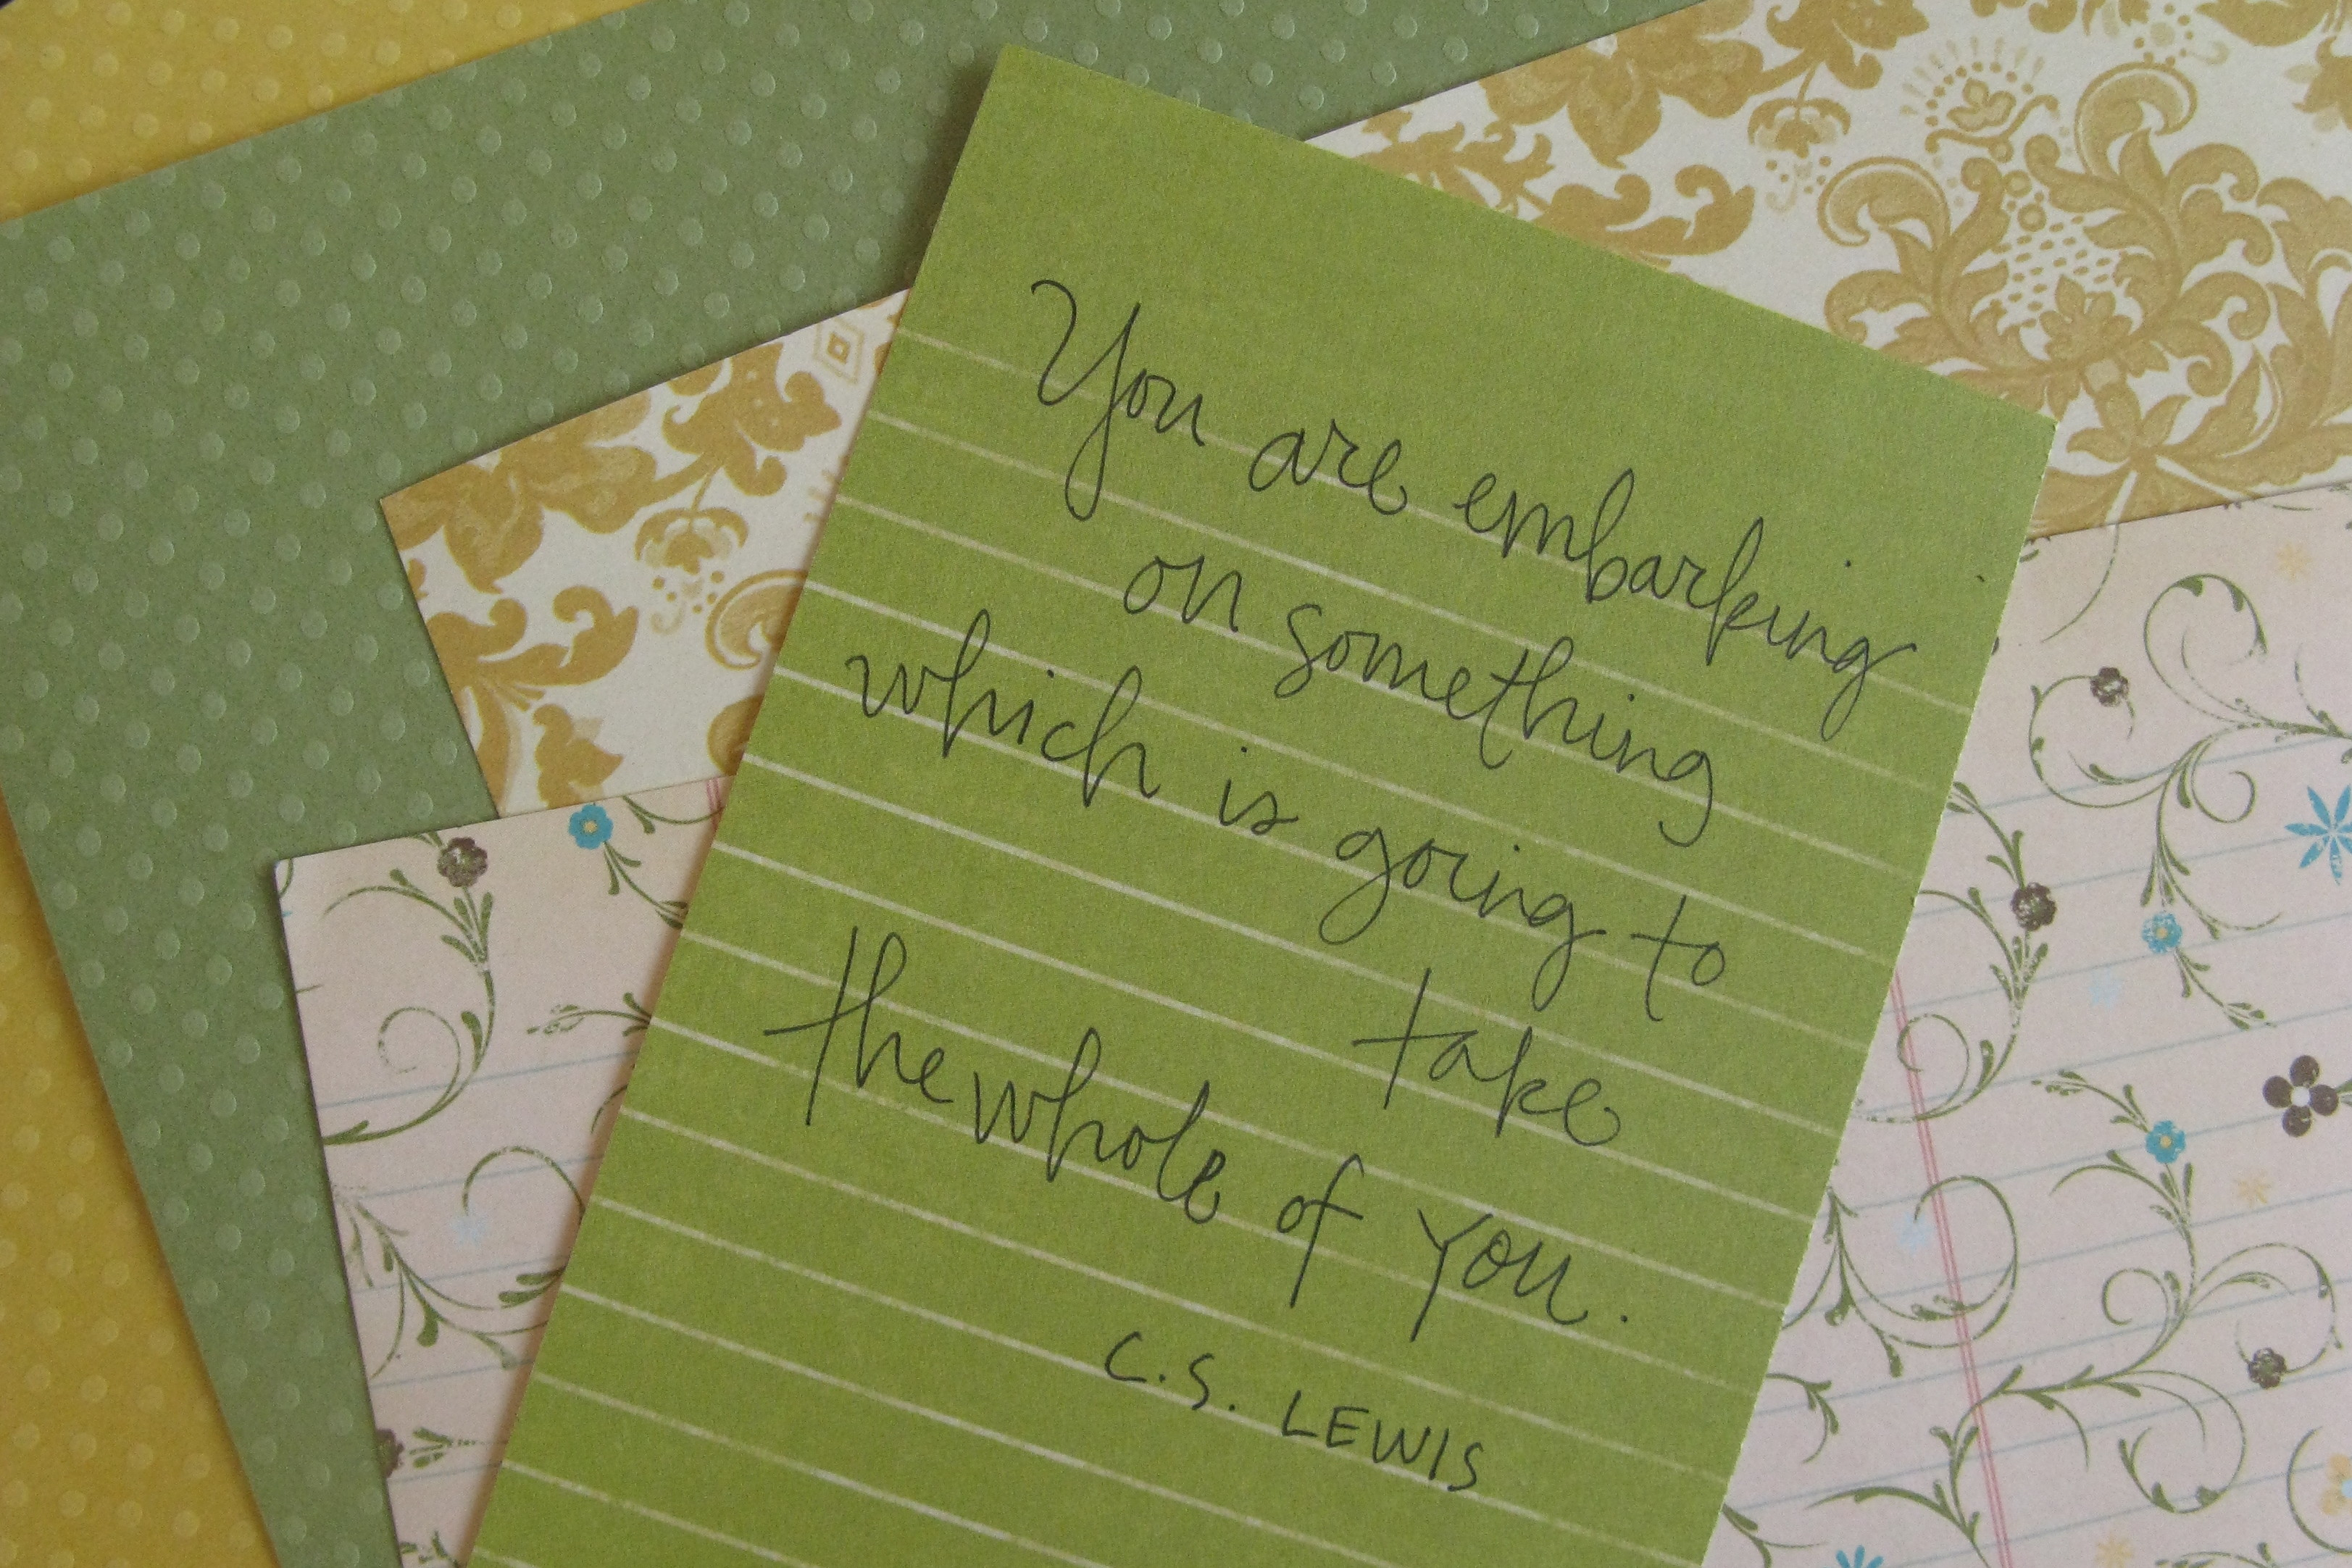 You are embarking
on something
which is going to
take
the whole of you.
C.S. LEWIS